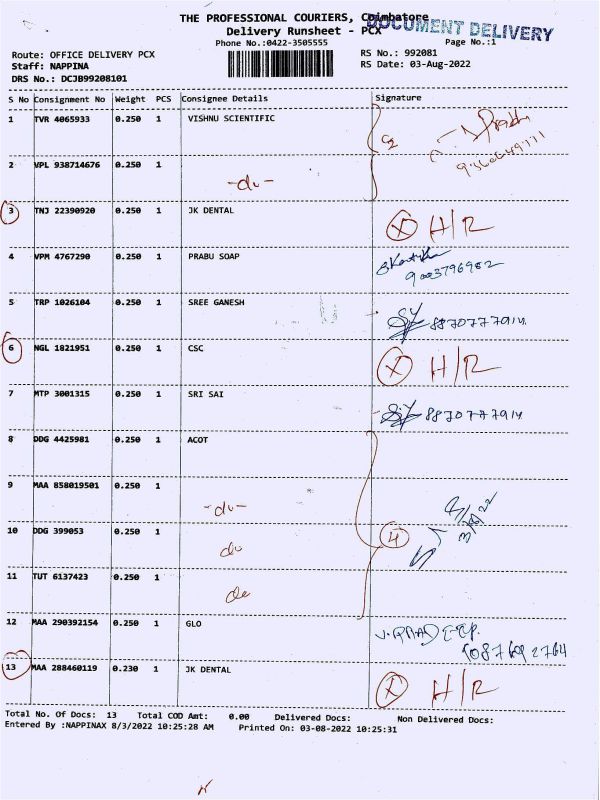 THE PROFESSIONAL COURIERS, Coimbatore
DOCUMENT DELIVERY
Delivery Runsheet - PCX
Phone No.:0422-3505555
Page No.:1
Route: OFFICE DELIVERY PCX
RS No.: 992081
Staff: NAPPINA
RS Date: 03-Aug-2022
DRS No.: DCJB99208101
S No Consignment No Weight PCS Consignee Details Signature
1 TVR 4065933 0.250 1 VISHNU SCIENTIFIC
2 VPL 938714676 0.250 1
-do-
3 TNJ 22390920 0.250 1 JK DENTAL
X H/R
4 VPM 4767290 0.250 1 PRABU SOAP
9003796982
5 TRP 1026104 0.250 1 SREE GANESH
8870777914
6 NGL 1821951 0.250 1 CSC
X H/R
7 MTP 3001315 0.250 1 SRI SAI
8870777914
8 DDG 4425981 0.250 1 ACOT
9 MAA 858019501 0.250 1
-do-
3/8/22
10 DDG 399053 0.250 1
do
4
11 TUT 6137423 0.250 1
do
12 MAA 290392154 0.250 1 GLO
V. PRADEEP.
13 MAA 288460119 0.230 1 JK DENTAL
X H/R
Total No. Of Docs: 13 Total COD Amt: 0.00 Delivered Docs: Non Delivered Docs:
Entered By :NAPPINAX 8/3/2022 10:25:28 AM Printed On: 03-08-2022 10:25:31